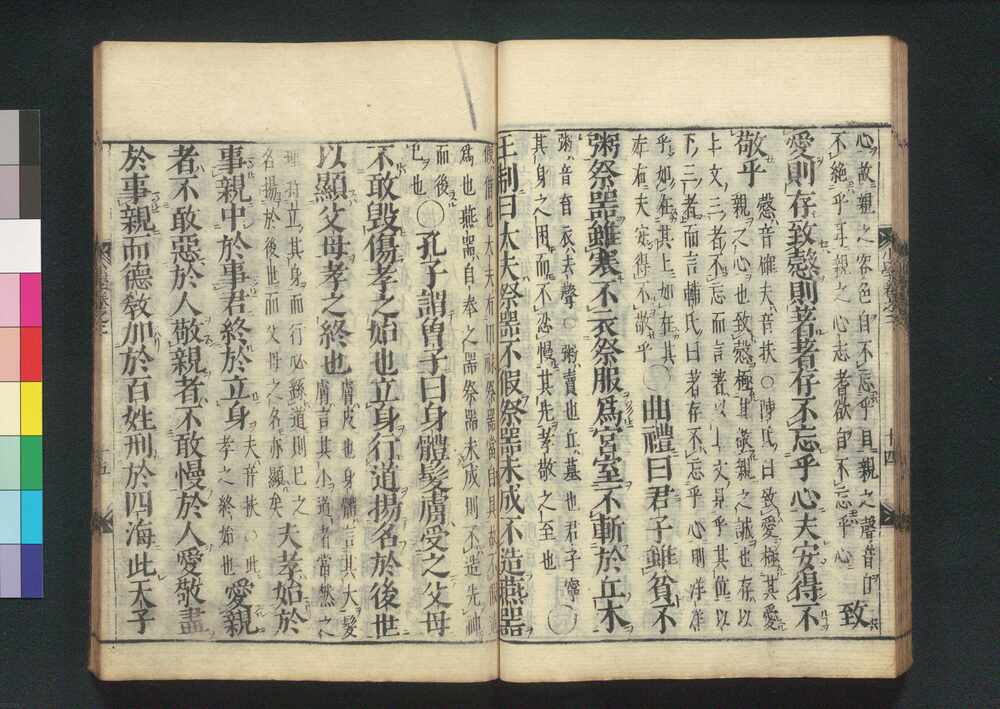 心故親之容色自不忘乎目親之聲音自
不絕乎耳親之心志者欲自不忘乎心 致
愛則存致慤則著著存不忘乎心夫安得不
敬乎 慤音確夫音扶○陳氏曰致愛極其愛
親之心也致慤極其敬親之誠也存以
上文三者不忘而言著以上文見乎其位以
下三者而言輔氏曰著存不忘乎心則洋洋
乎如在其上如在其
左右夫安得不敬乎 ○曲禮曰君子雖貧不
粥祭器雖寒不衣祭服爲宮室不斬於丘木
粥音育衣去聲○粥賣也丘墓也君子寧
其身之用而不恣慢其先孝敬之至也 ○
王制曰大夫祭器不假祭器未成不造燕器
假借也大夫有田祿祭器當自具
爲也燕器自奉之器祭器未成則不造先神
而後
己也 ○孔子謂曾子曰身體髮膚受之父母
不敢毀傷孝之始也立身行道揚名於後世
以顯父母孝之終也 膚皮也身體言其大髮
膚言其小道者當然之
理 立其身而行必繇道則上之
名揚於後世而父母之名亦顯矣 夫孝始於
事親中於事君終於立身 夫音扶○此
孝之終始也 愛親
者不敢惡於人敬親者不敢慢於人愛敬盡
於事親而德教加於百姓刑於四海此天子
十四
十五